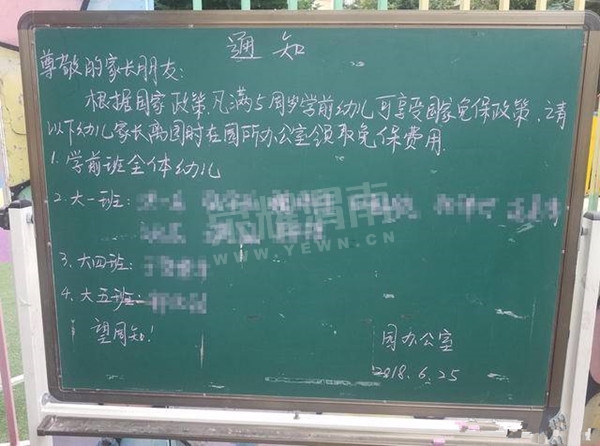 通知
尊敬的家长朋友:
根据国家政策,凡满5周岁学前幼儿可享受国家免保政策,请
以下幼儿家长离园时在园所办公室领取免保费用.
1.学前班全体幼儿
2.大一班:
荣耀渭南
WWW.YEWN.CN
3.大四班:
4.大五班
望周知!
园办公室
2018.6.25